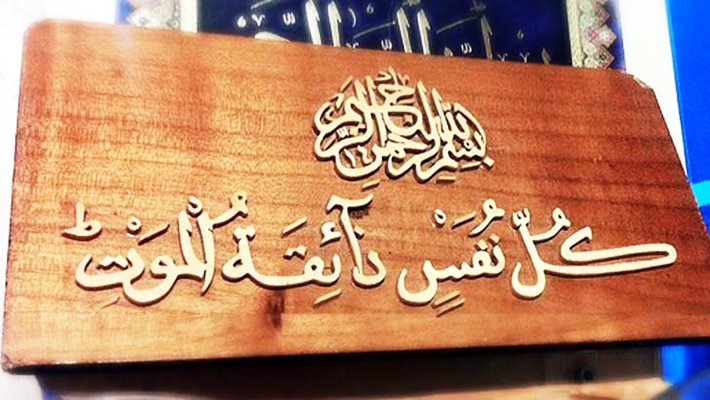 بسم الله الرحمن الرحيم
كُلُّ نَفْسٍ ذَآئِقَةُ الْمَوْتِ ط